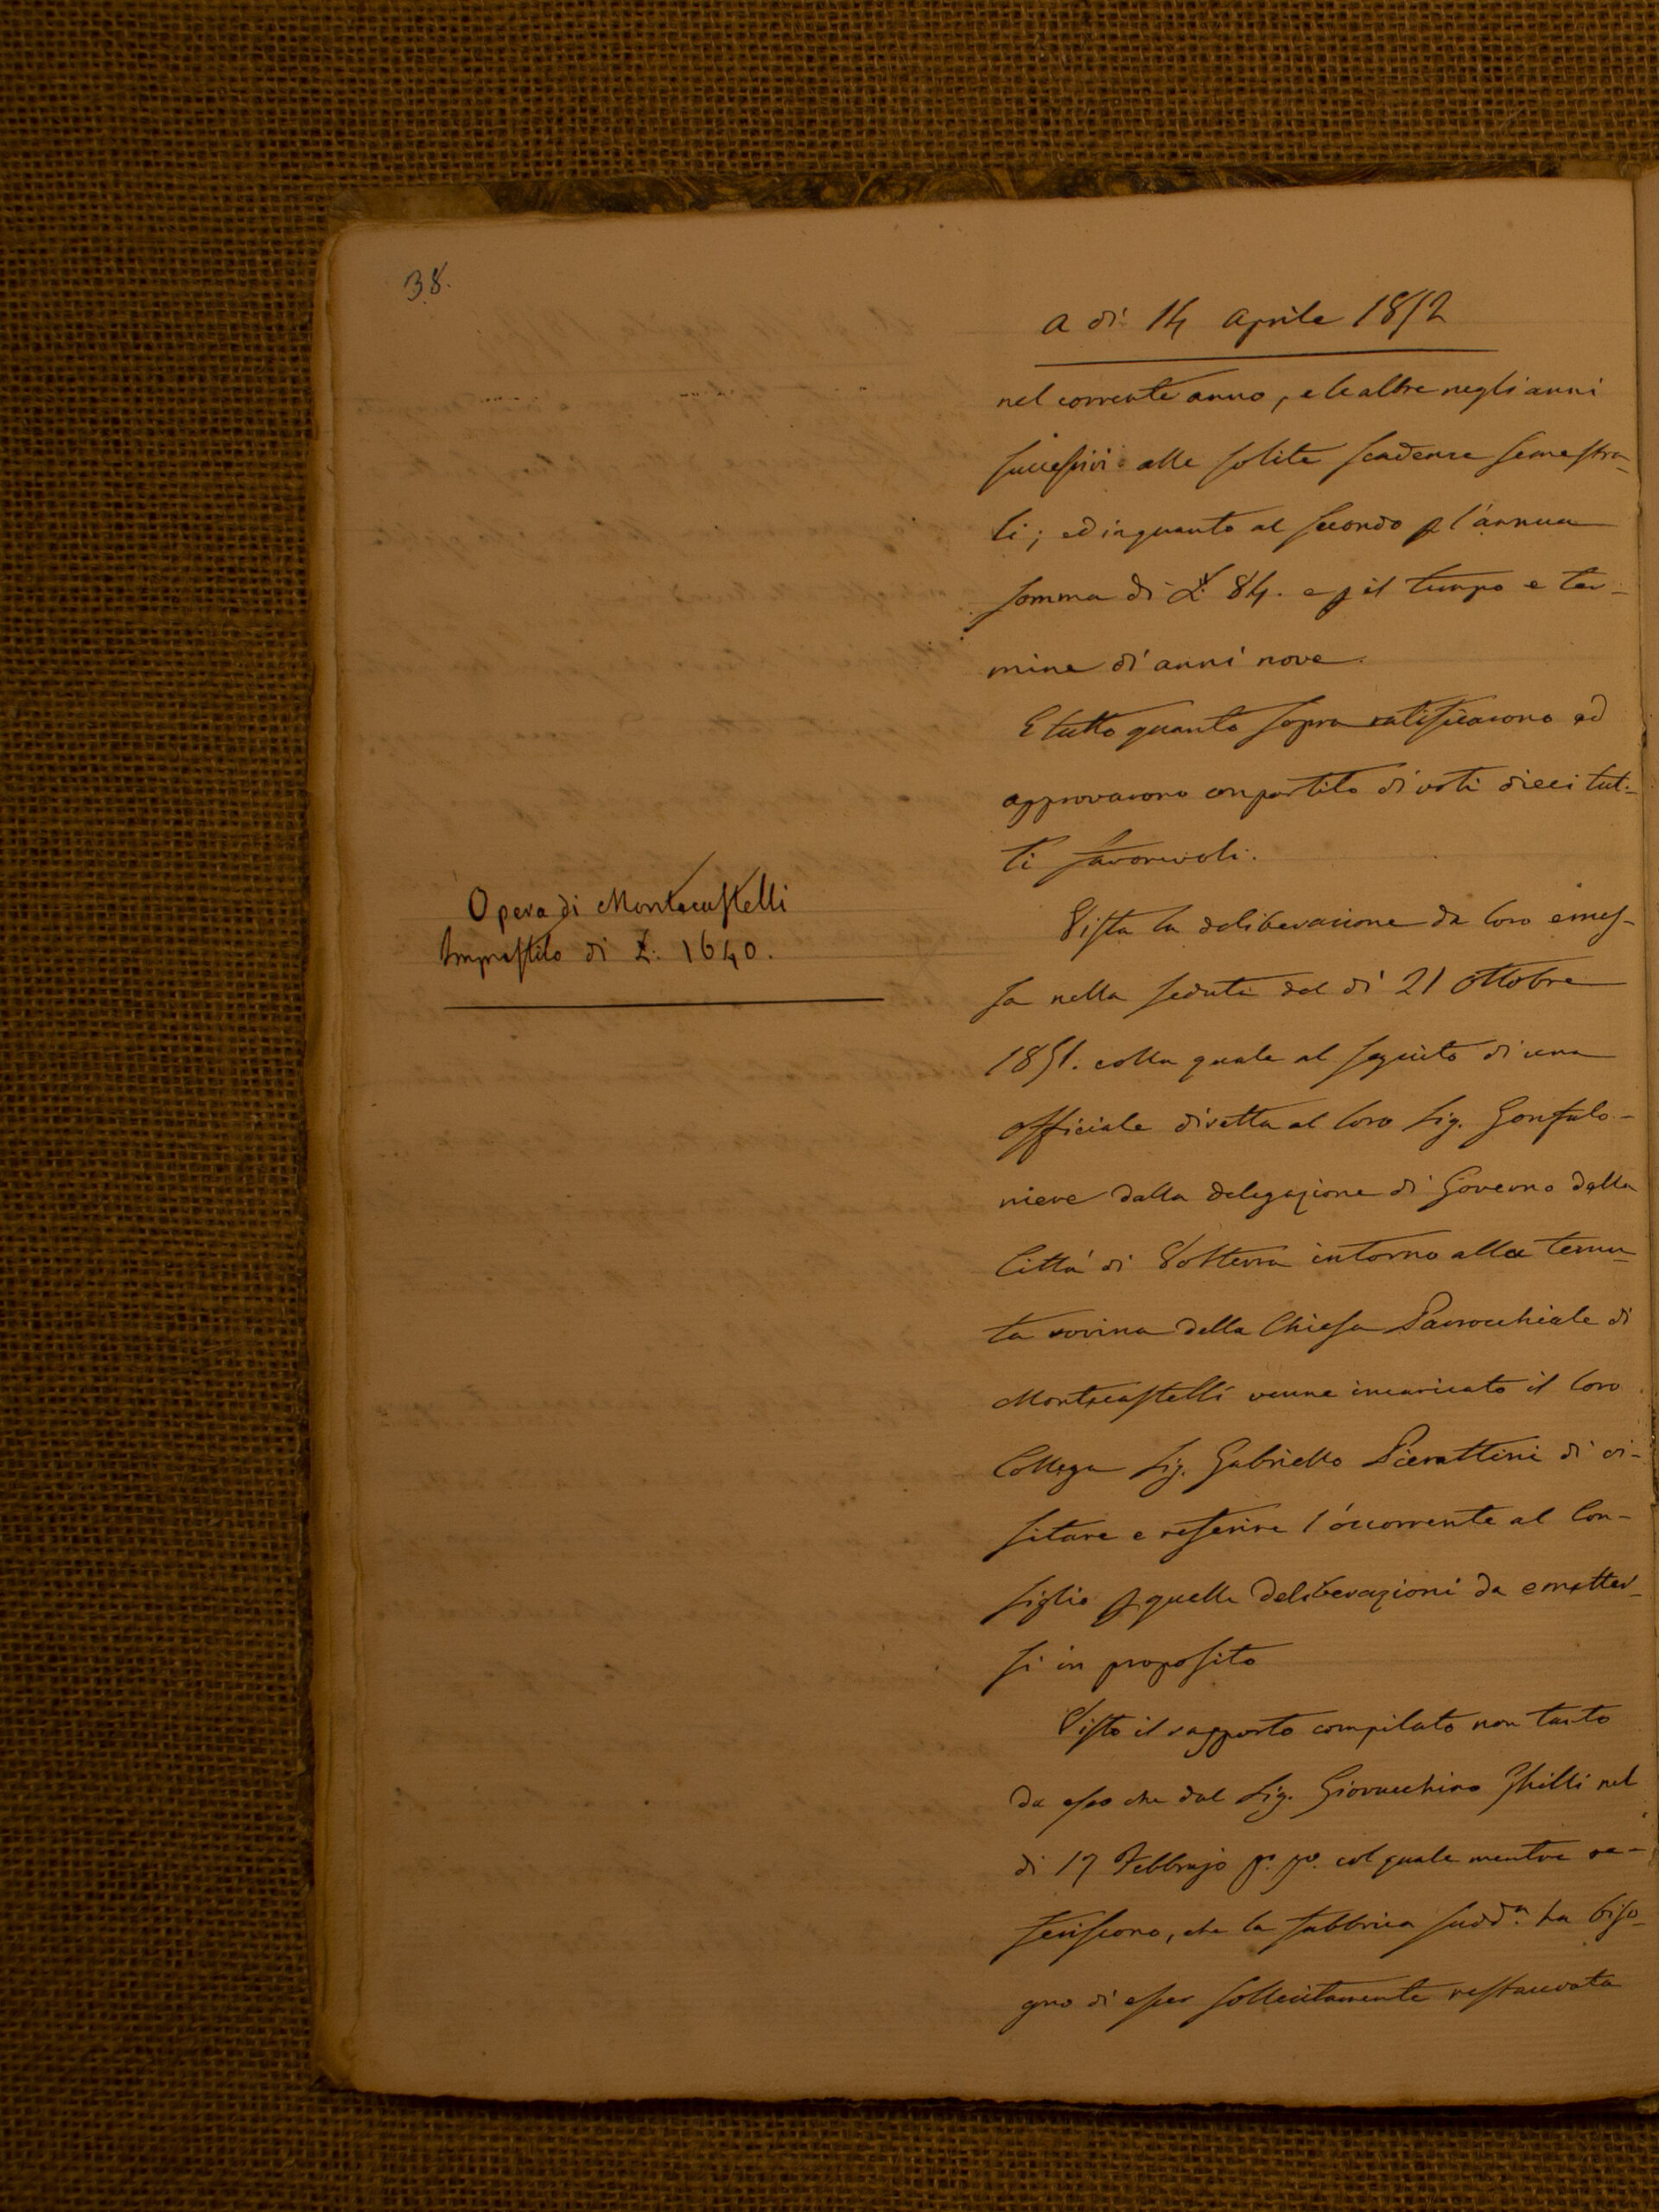 38.
a di 14 Aprile 1852
nel corrente anno, e le altre negli anni
successivi alle solite scadenze semestra-
li; ed inquanto al secondo p l'annua
somma di £ 84. e p il tempo e ter-
mine di anni nove.
E tutto quanto sopra ratificarono ed
approvarono con partito di voti dieci tut-
ti favorevoli.
Opera di Montecastelli
Imprestito di £: 1640.
Vista la deliberazione da loro emes-
sa nella seduta del di 21 Ottobre
1851. colla quale al seguito di una
Officiale diretta al loro Sig. Gonfalo-
niere dalla delegazione di Governo della
Città di Volterra intorno alla temu-
ta rovina della Chiesa Parrocchiale di
Montecastelli venne incaricato il loro
Collega Sig. Gabriello Pierattini di vi-
sitare e referire l'occorrente al Con-
siglio p quelle deliberazioni da emetter-
si in proposito
Visto il rapporto compilato non tanto
da esso che dal Sig. Giovacchino Ghilli nel
di 17 Febbrajo p.º p.º col quale mentre re-
feriscono, che la fabbrica sudd.ª ha biso-
gno di esser sollecitamente restaurata